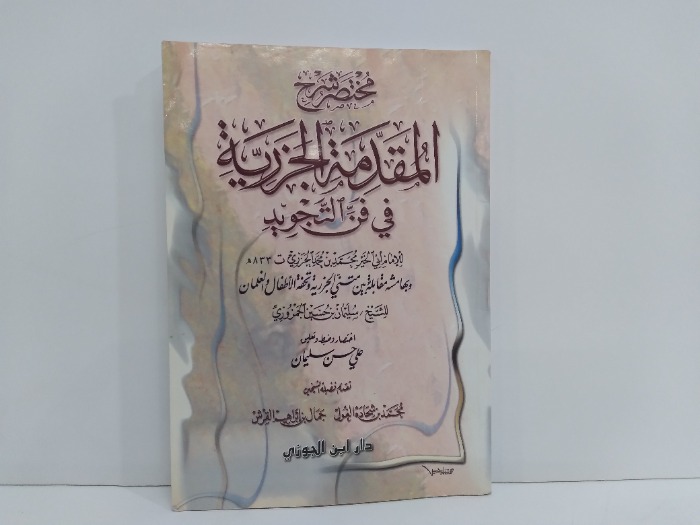 مختصر شرح
المقدمة الجزرية
في فن التجويد
للإمام أبي الخير محمد بن محمد الجزري ت ٨٣٣ هـ
وبهامشه مقابلة بين متني الجزرية وتحفة الأطفال والغلمان
للشيخ / سليمان بن حسين الجمزوري
اختصار وضبط وتعليق
علي حسن سليمان
تقديم فضيلة الشيخين
محمد بن شحادة الغول جمال بن إبراهيم القرش
دار ابن الجوزي